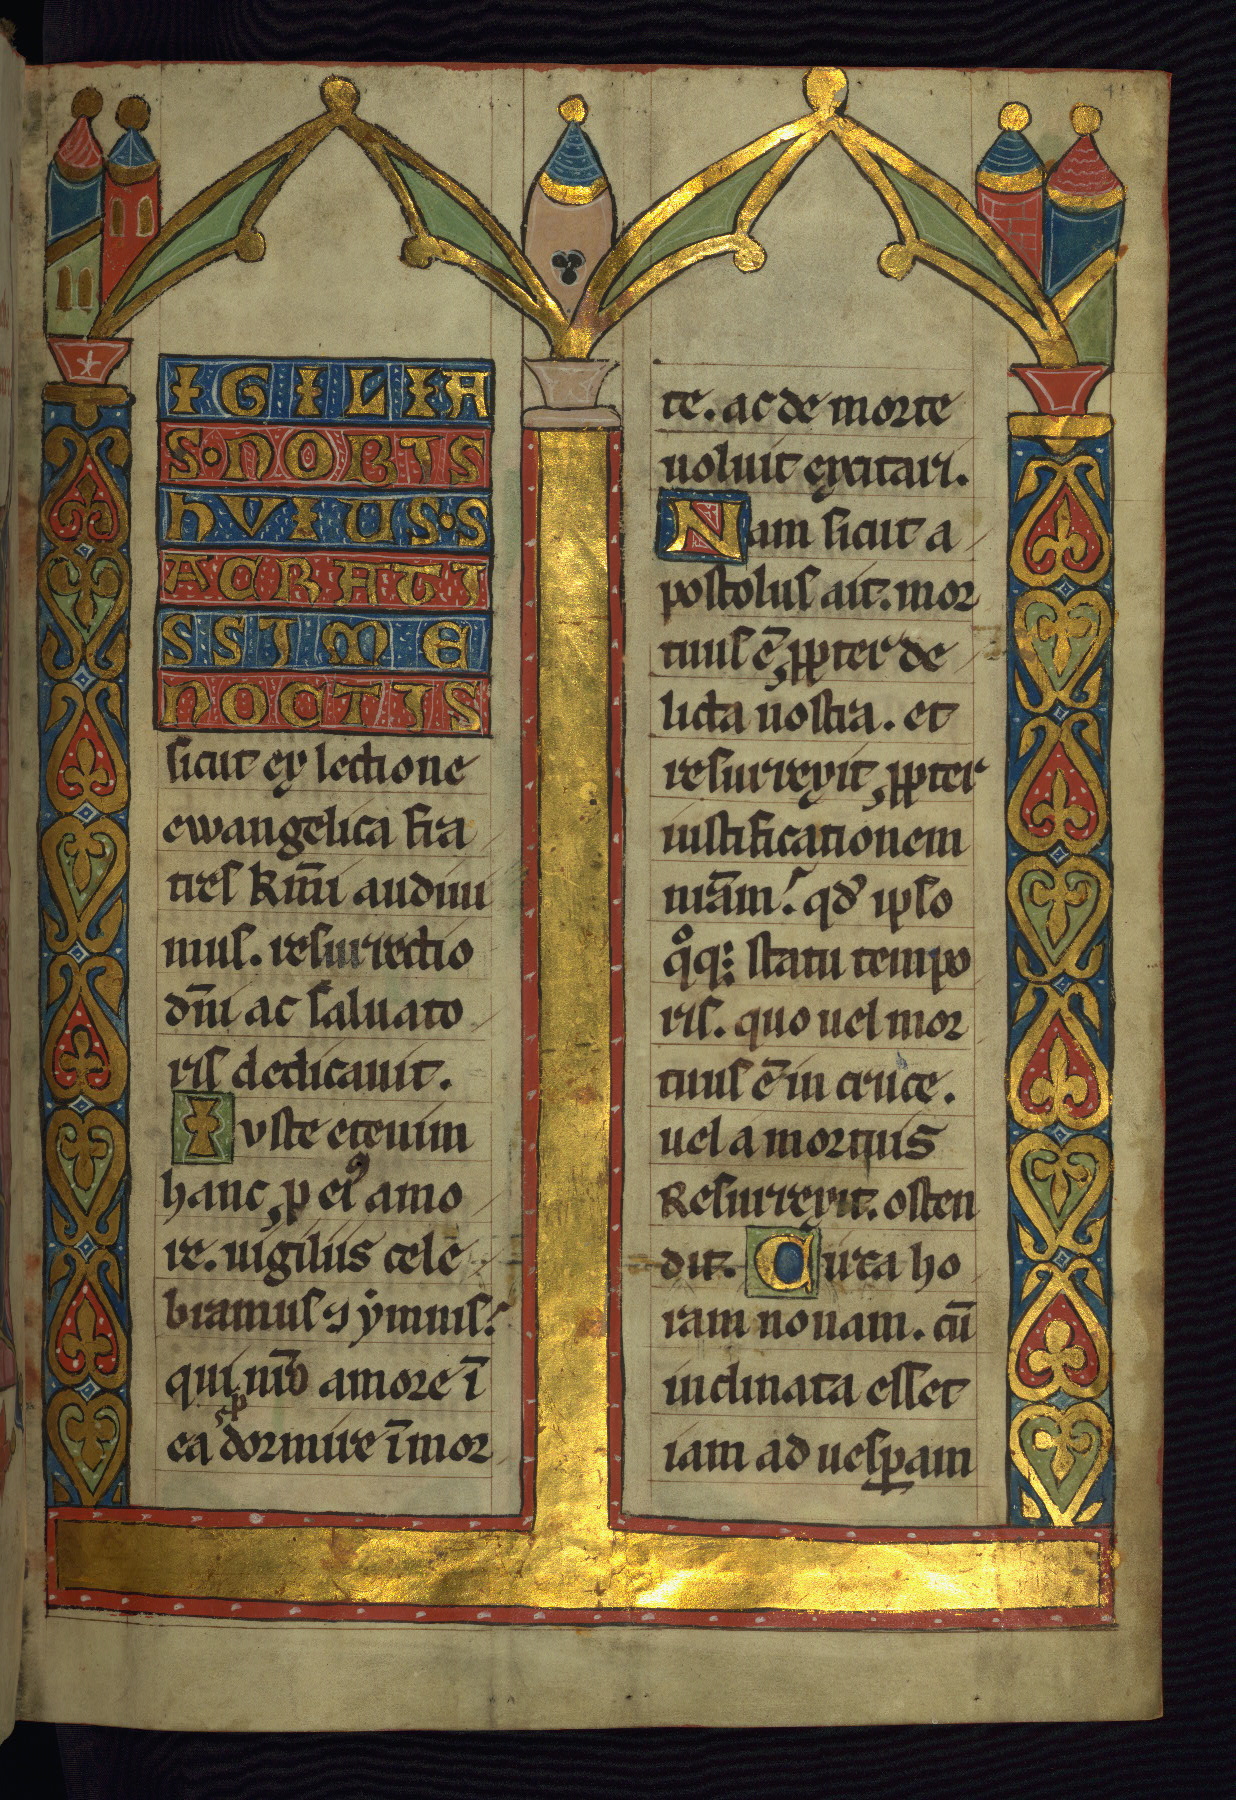 IGILIA
S·NOBIS
hVIUS·S
ACRATI
SSIME
NOCTIS
sicut ex lectione
ewangelica fra
tres kr̄mi audiui
mus. resurrectio
dn̄i ac saluato
ris dedicauit.
Iuste etenim
hanc ꝓ ei⁹ amo
re. uigiliis cele
bramus ⁊ ẏmnis.
qui nr̄o amore ī
ea ꝓ dormire ī mor
te. ac de morte
uoluit excitari.
Nam sicut a
postolus ait. mor
tuus ē ꝓpter de
licta nostra. et
resurrexit ꝓpter
iustificationem
nr̄am. qd̓ ipso
qͦq; statu tempo
ris. quo uel mor
tuus ē in cruce.
uel a mortuis
Resurrexit. osten
dit. Circa ho
ram nonam. cū
inclinata esset
iam ad uesꝑam